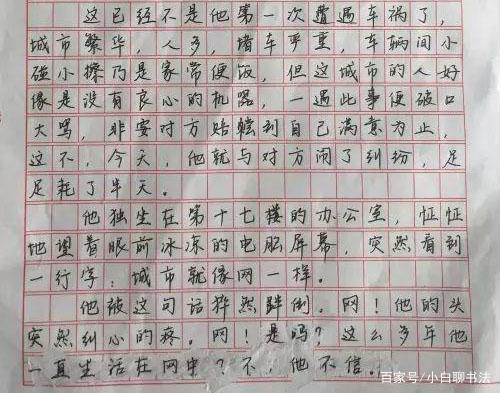 这已经不是他第一次遭遇车祸了，
城市繁华，人多，堵车严重，车辆间小
碰小擦乃是家常便饭，但这城市的人好
像是没有良心的机器，一遇此事便破口
大骂，非要对方赔偿到自己满意为止，
这不，今天，他就与对方闹了纠纷，足
足耗了半天。
他独坐在第十七楼的办公室，怔怔
地望着眼前冰冻的电脑屏幕，突然看到
一行字：城市就像网一样。
他被这句话猝然倒。网！他的头
突然纠心的疼。网！是吗？这么多年他
一直生活在网中？不，他不信。
百家号/小白聊书法